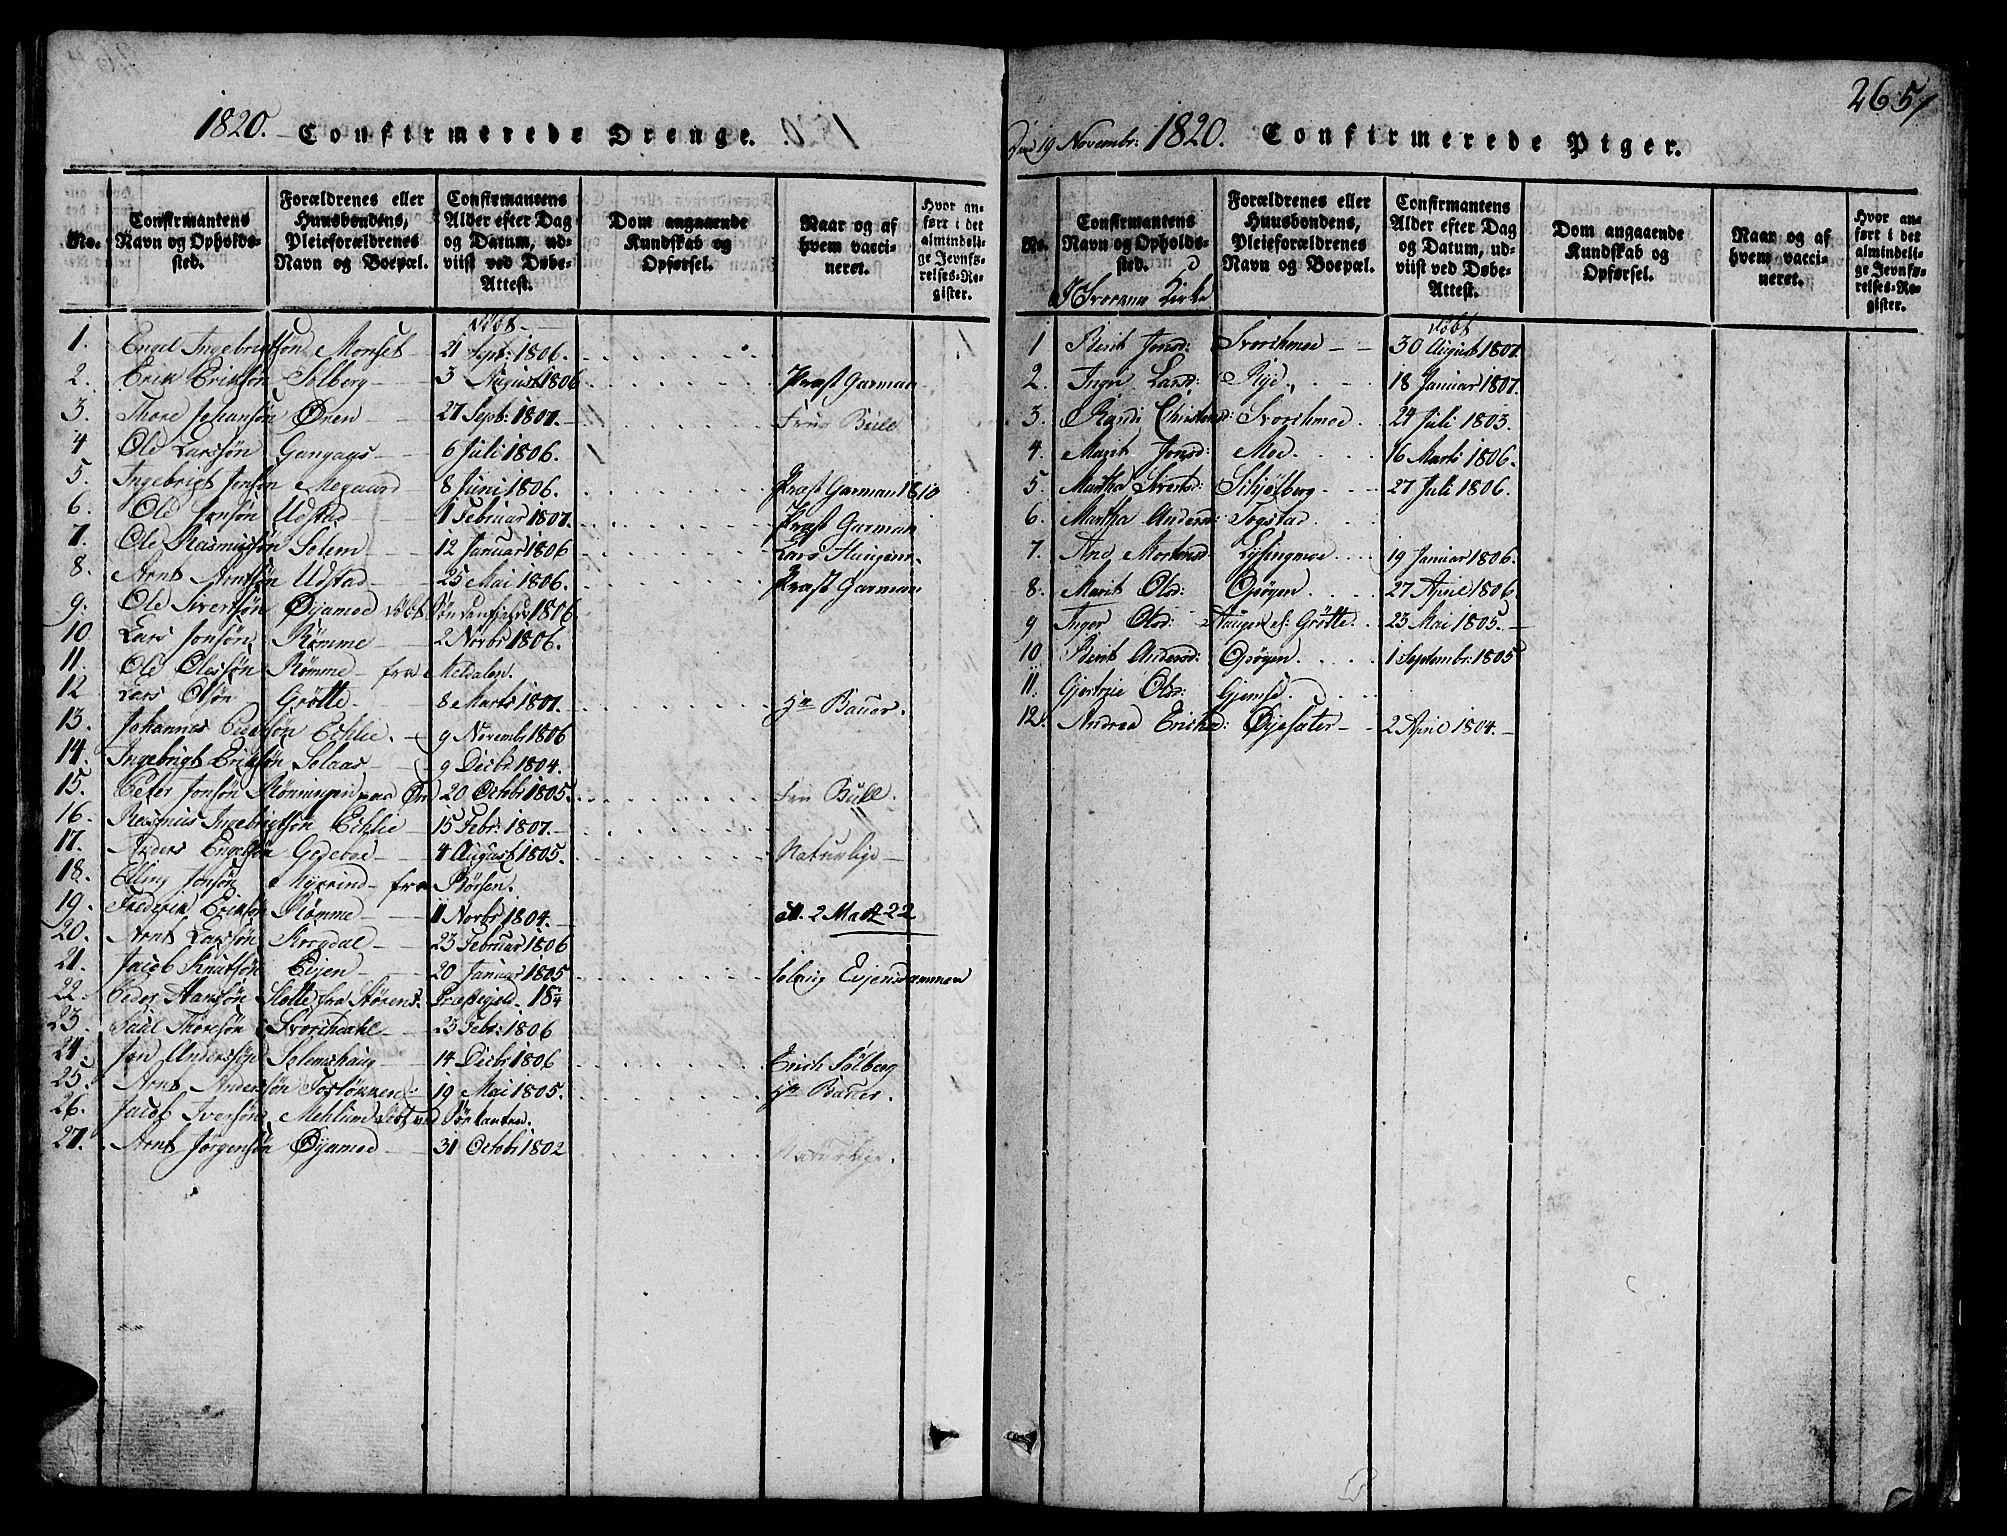 1820. Confirmerede Drenge.
No.
Confirmantens Navn og Opholdssted.
Forældrenes eller Huusbondens, Pleieforældrenes Navn og Boepæl.
Confirmantens Alder efter Dag og Datum, udviist ved Døbe-Attest.
Dom angaaende Kundskab og Opførsel.
Naar og af hvem vaccineret.
Hvor anført i det almindelige Jevnførelses-Register.
døbt
1. Engel Ingebrigtsøn Monset 21 Sept: 1806.
2. Erik Eriksøn Solberg 3 August 1806 Præst Garman
3. Thore Johansøn Øren 27 Sept: 1801. Fru Bull
4 Ole Larsøn Gangaas 6 Juli 1806.
5. Ingebrigt Jonsøn Megaard 8 Juni 1806. Præst Garman 1810
6. Ole Jonsøn Udstad 1 Februar 1807. Præst Garman
7. Ole Rasmussøn Solem 12 Januar 1806 Lars Haugen.
8. Arnt Arntsøn Udstad 25 Mai 1806. Præst Garman
9. Ole Sivertsøn Øyamoe døbt 1806.
10 Lars Jonsøn Rømme 2 Novbr 1806.
11. Ole Olessøn Rømme fra Meldalen.
12 Lars Olsøn Grøtte 8 Marts 1801. Hr Bauer.
13. Johannes Ecklie. 9 Novembr 1806
14. Ingebrigt Eriksøn Solaas 9 Decbr 1804.
15. Peter Jonsøn 20 Octobr 1805. Fru Bull.
16. Rasmus Ingebrigtsøn Ecklie 15 Febr: 1807.
17. Anders Engelsøn Gedeboe 4 August 1805. Naturlige
18. Elling Jonsøn fra Børsen.
19. Frederik Eriksøn Rømme 11 Novbr 1804. att. 2 Martz 22
20. Arnt Larsøn Korsdal 23 Februar 1806
21. Jacob Knutsøn Eyen 20 Januar 1805 Solvig Eyensdammen
22. Peder Hansøn fra Størens Præstegield.
23. Paul Thoresøn Svorkdahl 23 Febr: 1806
24. Jon Andersøn Solemshaug 14 Decbr 1806 Erich Solberg
25. Arnt Andersøn 19 Mai 1805. Hr Bauer.
26. Jacob Iversøn Mehlund døbt ved Ørkanten.
27. Arnt Jørgensøn Øyamoe 31 Octobr 1802 Naturlige.
265
Den 19 Novembr: 1820. Confirmerede Piger.
No.
Confirmantens Navn og Opholdssted.
Forældrenes eller Huusbondens, Pleieforældrenes Navn og Boepæl.
Confirmantens Alder efter Dag og Datum, udviist ved Døbe-Attest.
Dom angaaende Kundskab og Opførsel.
Naar og af hvem vaccineret.
Hvor anført i det almindelige Jevnførelses-Register.
Kirke
døbt
1 Berit Jonsd: Svorkmoe 30 August 1801.
2. Inger Larsd: Rye 18 Januar 1807.
3. Randi Christensd: Svorkmoe 24 Juli 1803.
4. Marit Jonsd: Moe 16 Marts 1806.
5. Martha Sivertsd: Skjølberg 27 Juli 1806.
6. Martha Andersd: Togstad
7. Ane Mortensd: Lysingmoe 19 Januar 1806.
8. Marit Olsd: Opøyen 27 April 1806
9 Inger Olsd: Haugen ef: Grøtte 23 Mai 1805.
10 Berit Andersd: Opøyen 1 Septembr: 1805
11. Gjertrue Olsd: Gjemse
12. Andrea Ericksd: Øyesater 2 April 1804.